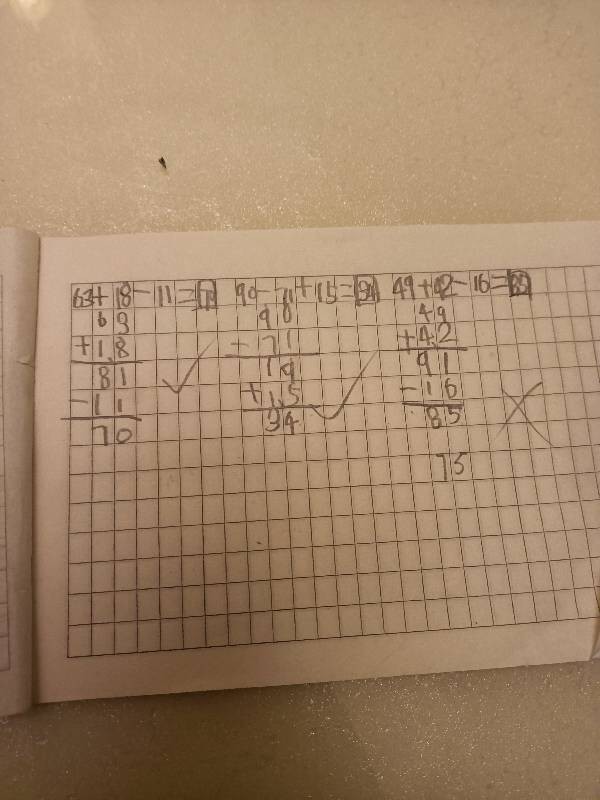 63+18-11=70 90-71+15=34 49+42-16=85
63
+18
81
-11
70
90
-71
19
+15
34
49
+42
91
-16
85
75